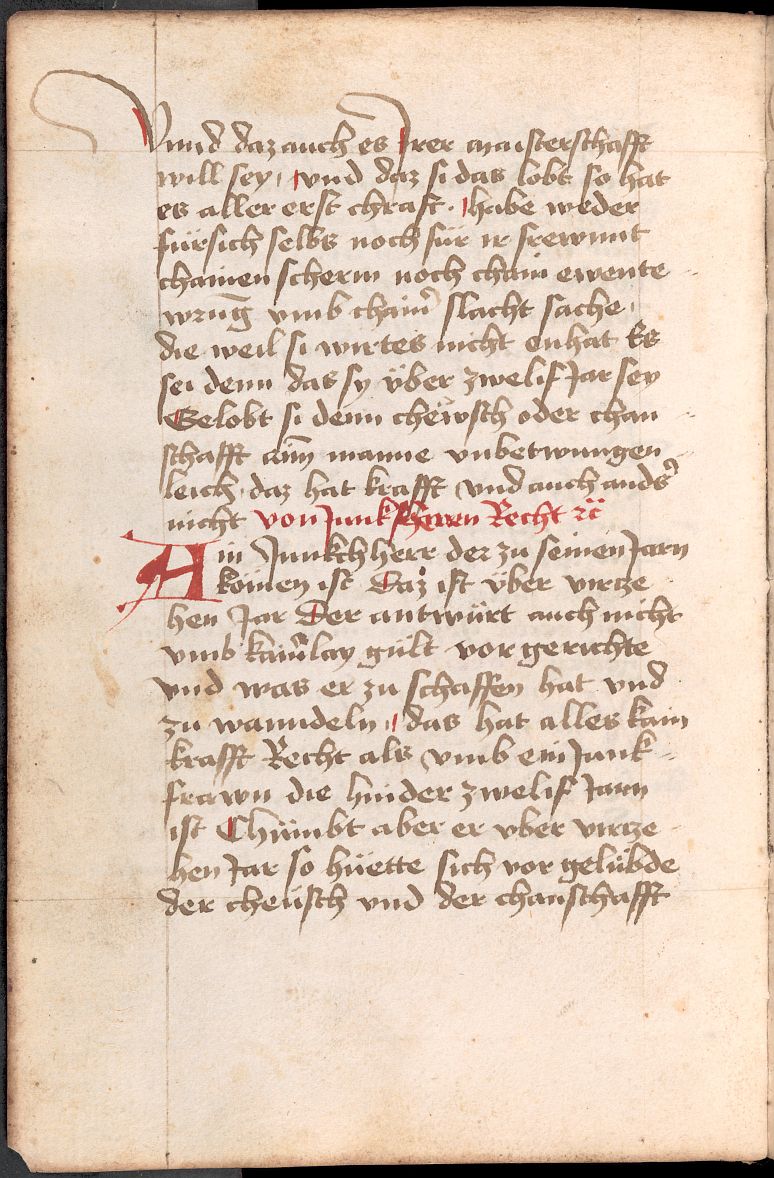 Vnnd daz auch es Irer maisterschafft
will sey, vnd daz si das lobt so hat
es aller erst chraft. habe weder
für sich selbs noch für ir frewnnt
chainen scherm noch chain ewente
wrūg vmb chain̄ slacht sache,
die weil si wirtes nicht enhat Es
sei denn das sy über zwelif Jar sey
Gelobt si denn chëwsch oder chan
schafft aim̄ manne vnbetwungen
leich, daz hat krafft vnd auch ands̄
nicht von Junkherren Recht ꝛc̈
Ain Junkchherr der zu seinen Jarn
komen ist Daz ist vber virtze
hen Jar Der antwürt auch nicht
vmb kain̄lay gült vor gerichte
vnd was er zu schaffen hat vnd
zu wanndeln, das hat alles kain
krafft Recht als vmb ein Junk
frawn die hinder zwelif Jarn
ist Chümbt aber er vber virtze
hen Jar so hüette sich vor gelübde
der cheüsch vnd der chanschafft